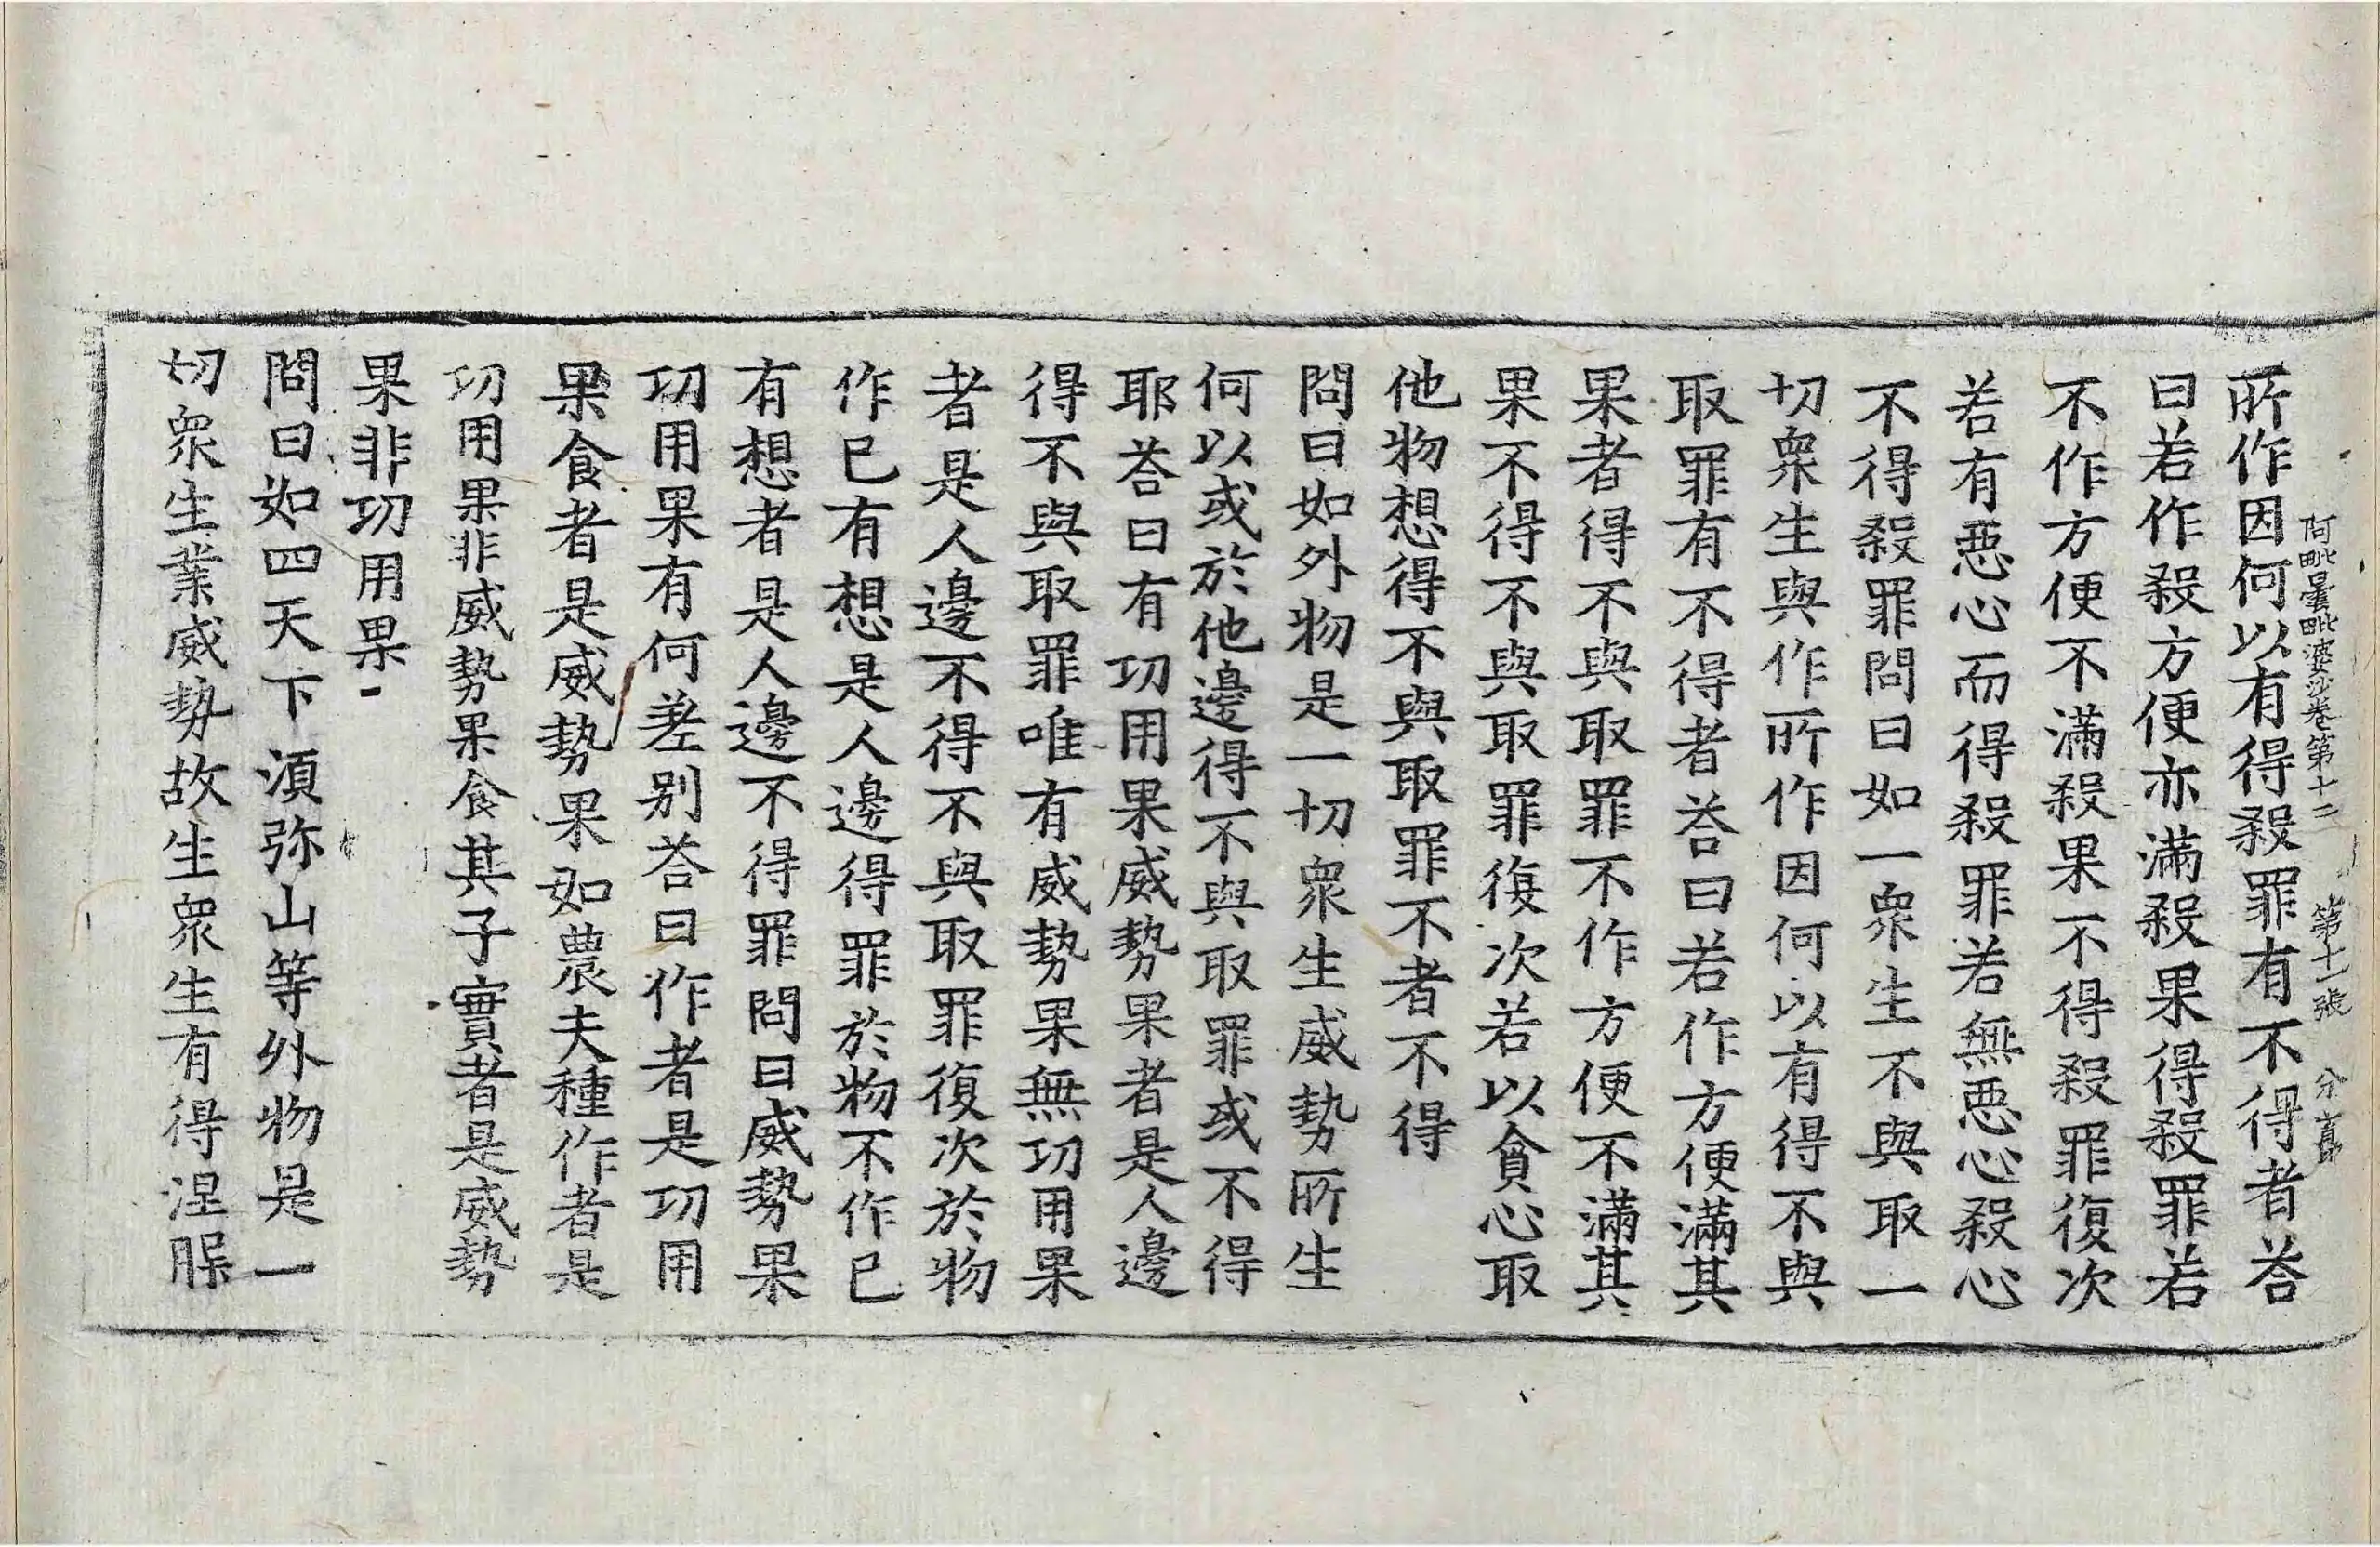 阿毗曇毗婆沙卷第十二 第十一張 分
所作因何以有得殺罪有不得者荅
曰若作殺方便亦滿殺果得殺罪若
不作方便不滿殺果不得殺罪復次
若有惡心而得殺罪若無惡心殺心
不得殺罪問曰如一衆生不與取一
切衆生與作所作因何以有得不與
取罪有不得者荅曰若作方便滿其
果者得不與取罪不作方便不滿其
果不得不與取罪復次若以貪心取
他物想得不與取罪不者不得
問曰如外物是一切衆生威勢所生
何以或於他邊得不與取罪或不得
耶荅曰有功用果威勢果者是人邊
得不與取罪唯有威勢果無功用果
者是人邊不得不與取罪復次於物
作已有想是人邊得罪於物不作已
有想者是人邊不得罪問曰威勢果
功用果有何差別荅曰作者是功用
果食者是威勢果如農夫種作者是
功用果非威勢果食其子實者是威勢
果非功用果
問曰如四天下須弥山等外物是一
切衆生業威勢故生衆生有得涅槃